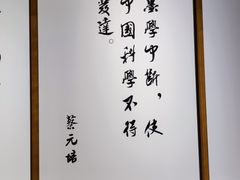 墨學中斷，使
中国科學不得
发達。
蔡元培